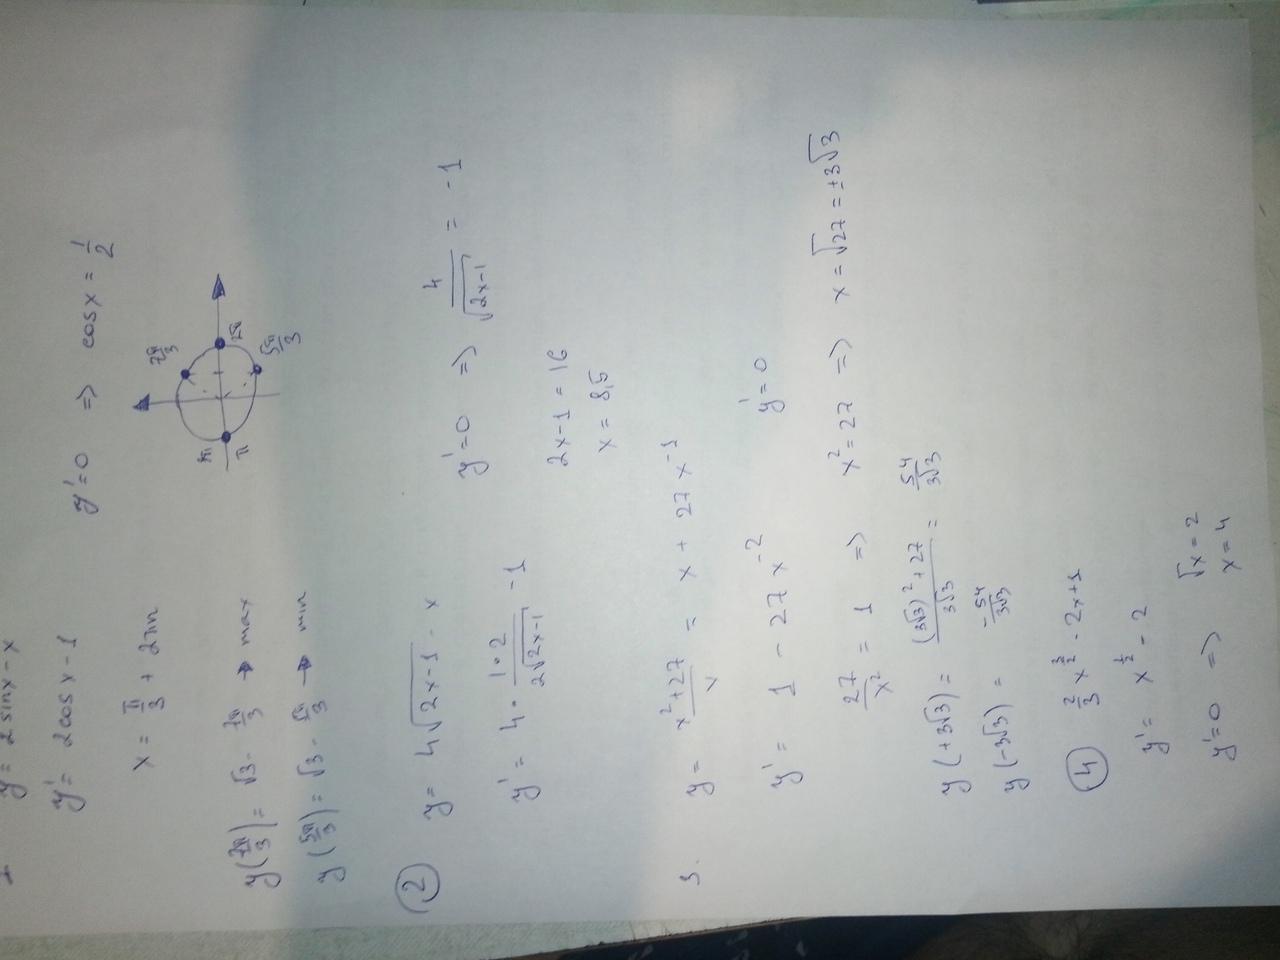 1 y = 2 sinx - x
y' = 2cosx - 1 y' = 0 => cosx = 1/2
x = π/3 + 2πn
7π/3
3π
π
2π
5π/3
y(7π/3) = √3 - 7π/3 → max
y(5π/3) = √3 - 5π/3 → min
② y = 4√(2x-1) - x
y' = 4 · (1·2)/(2√(2x-1)) - 1 y' = 0 => 4/√(2x-1) = -1
2x-1 = 16
x = 8,5
3. y = (x²+27)/x = x + 27x⁻¹
y' = 1 - 27x⁻² y' = 0
27/x² = 1 => x² = 27 => x = √27 = ±3√3
y(+3√3) = ((3√3)²+27)/(3√3) = 54/(3√3)
y(-3√3) = -54/(3√3)
④ 2/3 x^(3/2) - 2x+1
y' = x^(1/2) - 2
y' = 0 => √x = 2
x = 4